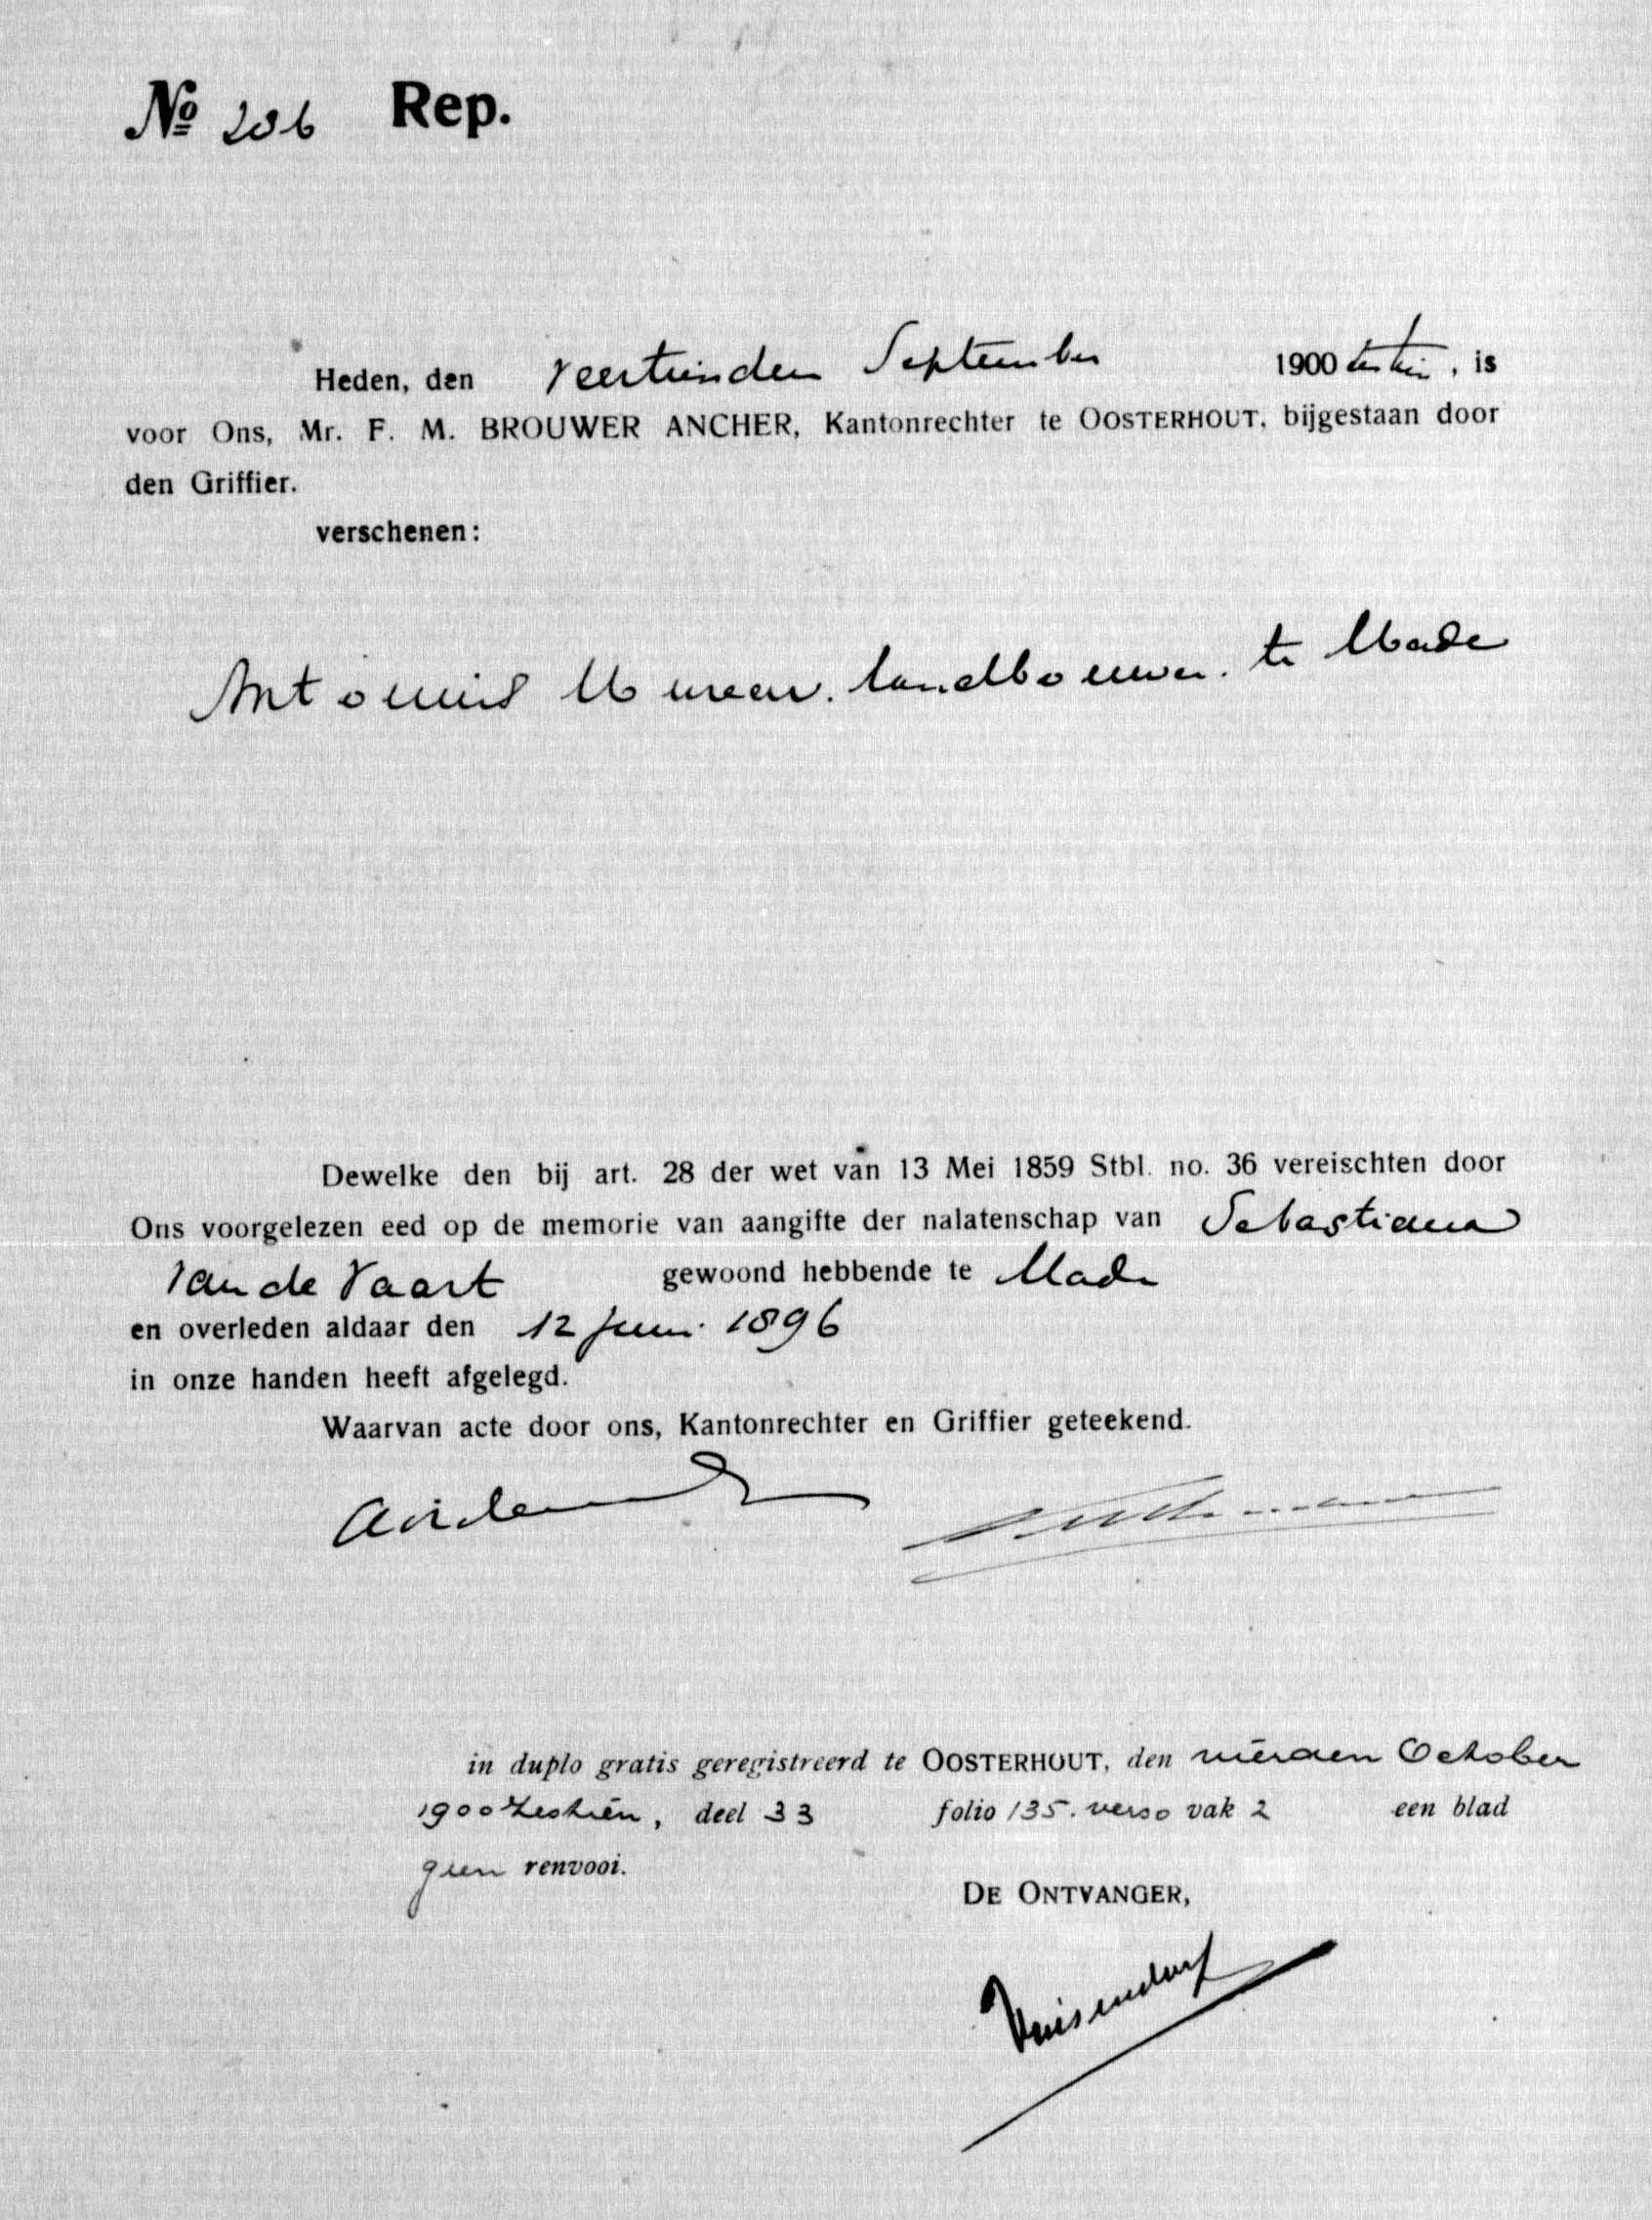 No 206 Rep.
Heden, den veertienden September 1900 zestien, is
voor Ons, Mr. F. M. BROUWER ANCHER, Kantonrechter te OOSTERHOUT, bijgestaan door
den Griffier.
verschenen:
Antonius landbouwer. te Made
Dewelke den bij art. 28 der wet van 13 Mei 1859 Stbl. no. 36 vereischten door
Ons voorgelezen eed op de memorie van aangifte der nalatenschap van Sebastiana
van de Vaart gewoond hebbende te Made
en overleden aldaar den 12 Juni 1896
in onze handen heeft afgelegd.
Waarvan acte door ons, Kantonrechter en Griffier geteekend.
in duplo gratis geregistreerd te OOSTERHOUT, den vierden October
1900 zestien, deel 33 folio 135. verso vak 2 een blad
geen renvooi.
DE ONTVANGER,